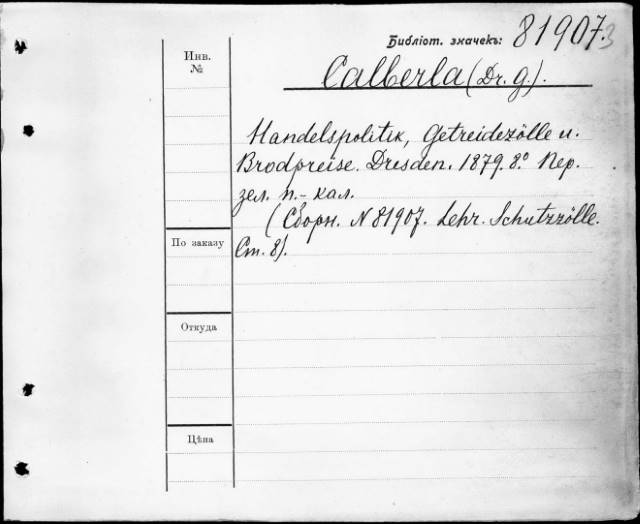 Библіот. значекъ: 81907.3
Инв.
№
Calberla (Dr. G.).
Handelspolitik, Getreidezölle u.
Brodpreise. Dresden. 1879. 8º. Пер.
зел. п.-кал.
(Сборн. N 81907. Lehr. Schutzzölle.
Ст. 8).
По заказу
Откуда
Цѣна